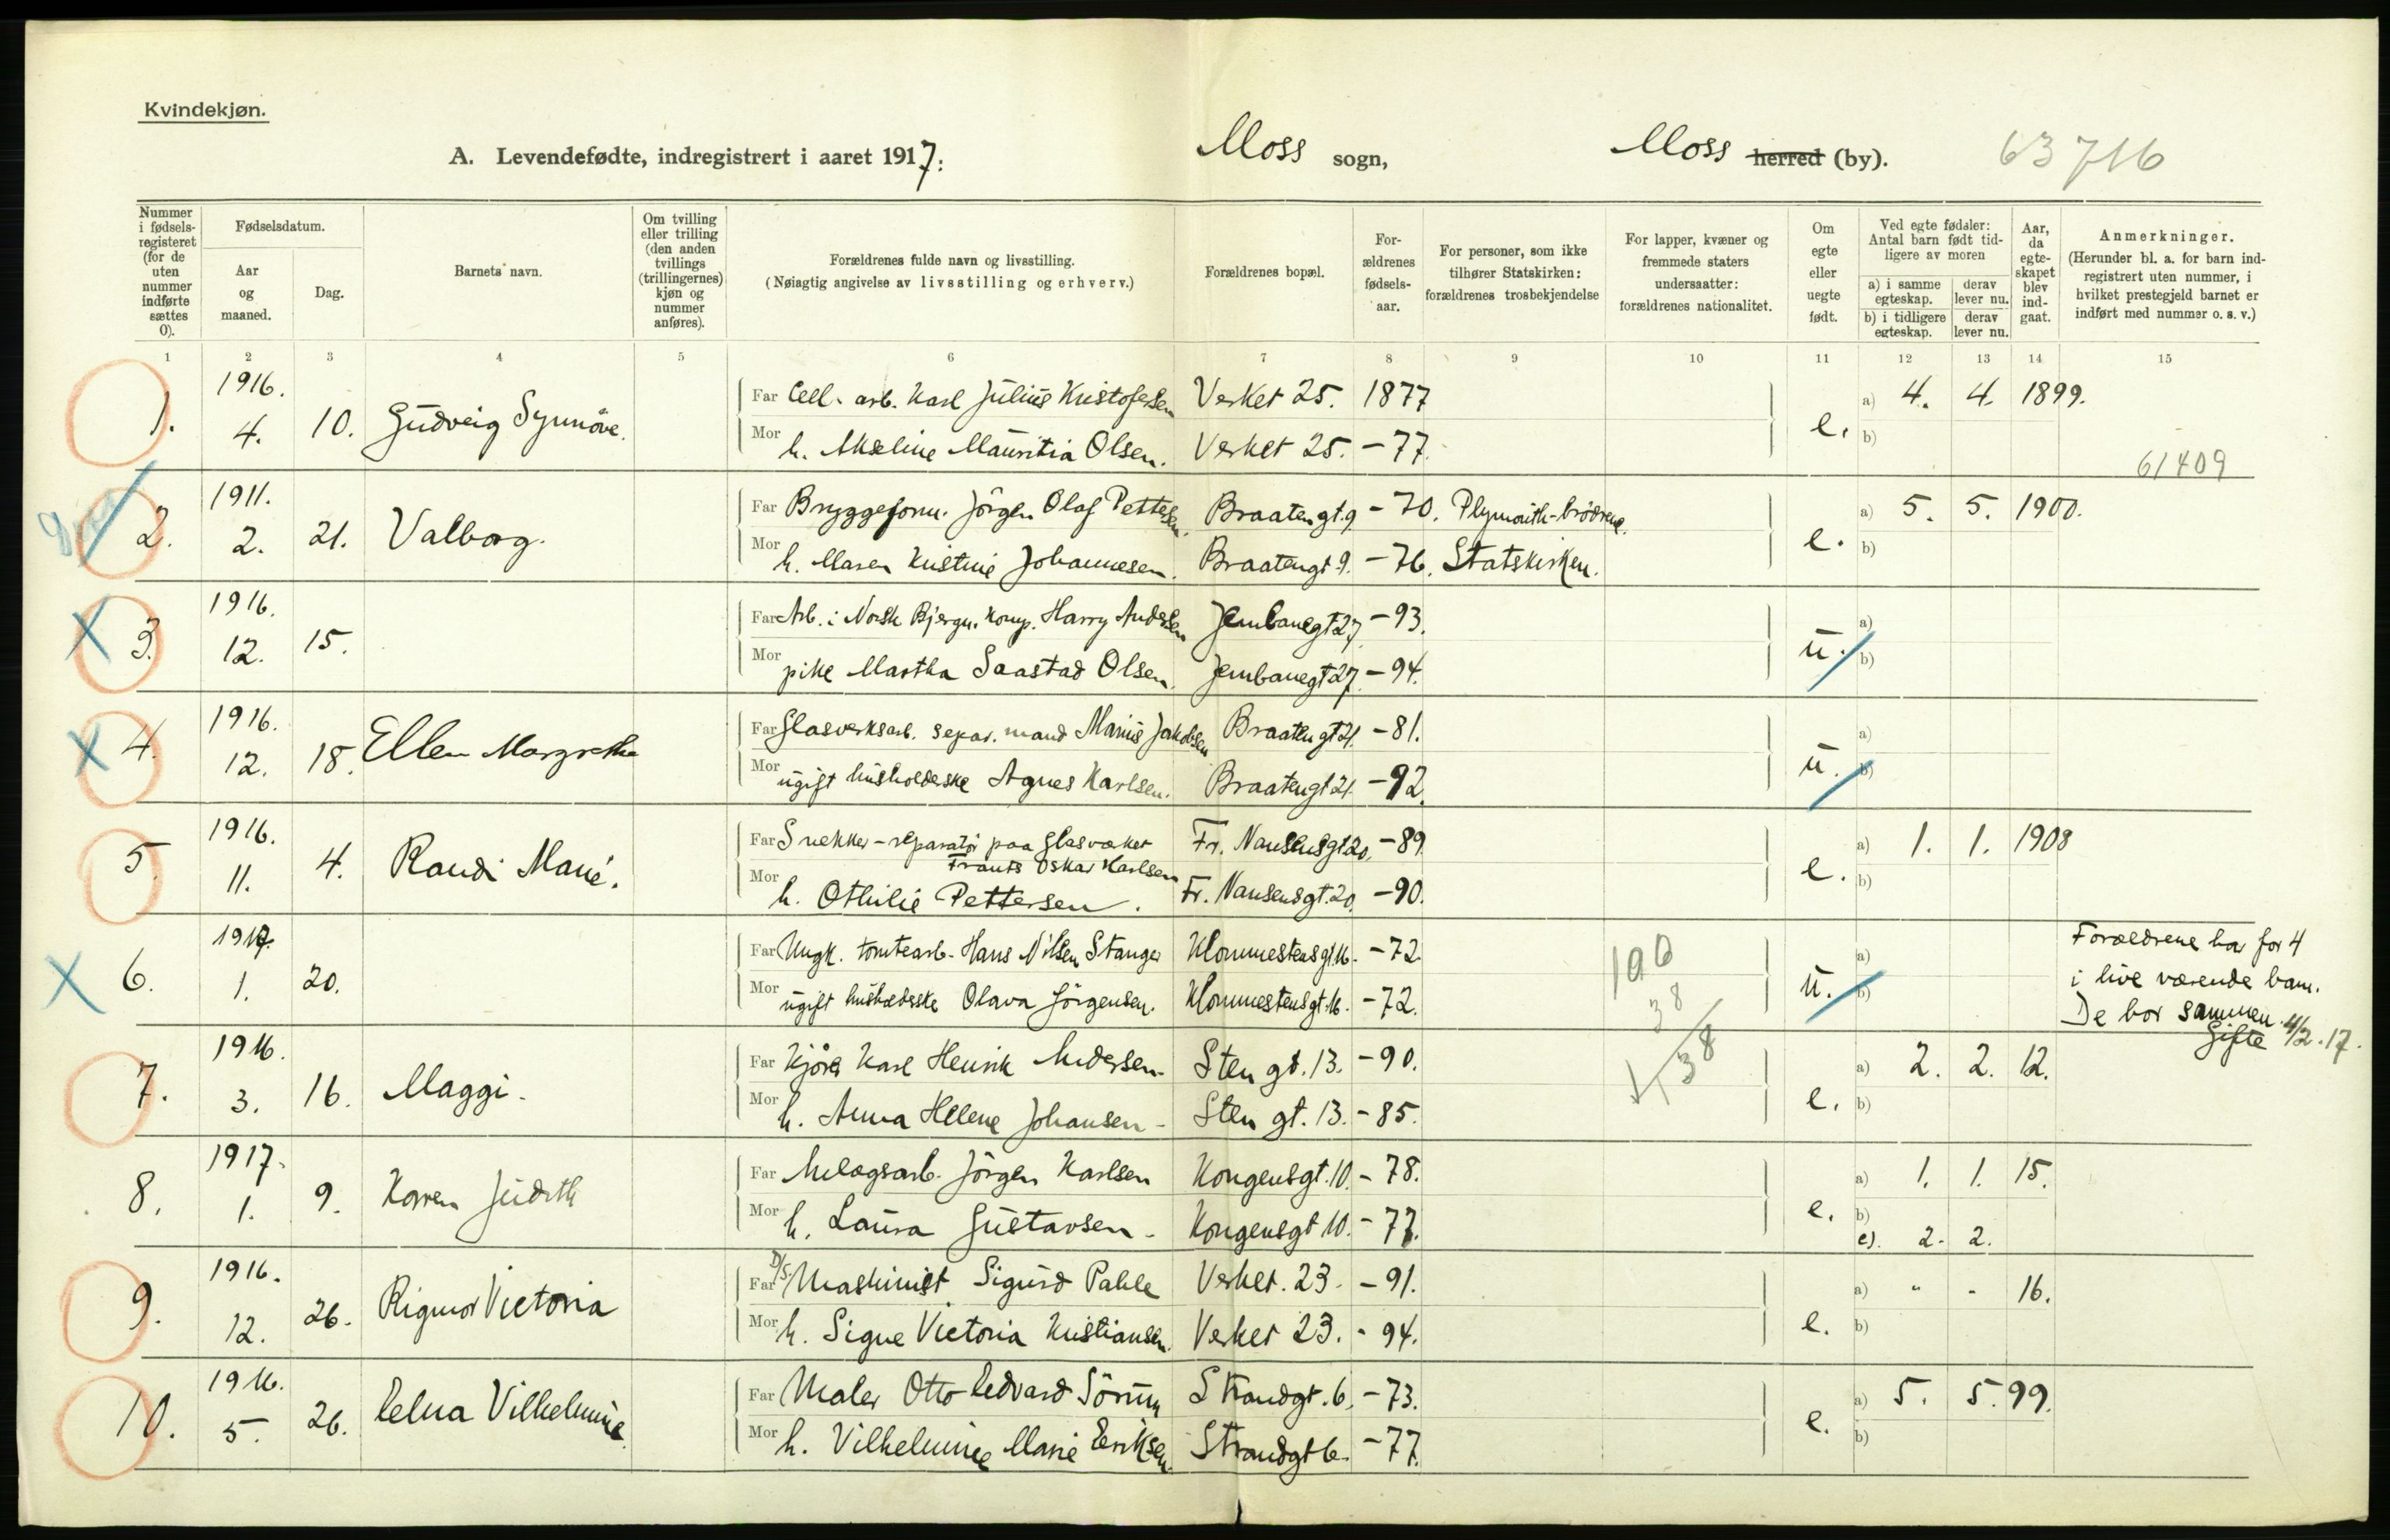 Kvindekjøn.
A. Levendefødte, indregistrert i aaret 1917. Moss sogn, Moss herred (by). 63716
Nummer i fødsels-registeret (for de uten nummer indførte sættes 0).
Fødselsdatum.
Aar og maaned.
Dag.
Barnets navn.
Om tvilling eller trilling (den anden tvillings (trillingernes) kjøn og nummer anføres).
Forældrenes fulde navn og livsstilling.
(Nøiagtig angivelse av livsstilling og erhverv.)
Forældrenes bopæl.
For-ældrenes fødsels-aar.
For personer, som ikke tilhører Statskirken: forældrenes trosbekjendelse
For lapper, kvæner og fremmede staters undersaatter: forældrenes nationalitet.
Om egte eller uegte født.
Ved egte fødsler: Antal barn født tid-ligere av moren
a) i samme egteskap. derav lever nu.
b) i tidligere egteskap. derav lever nu.
Aar, da egte-skapet blev ind-gaat.
Anmerkninger.
(Herunder bl. a. for barn ind-registrert uten nummer, i hvilket prestegjeld barnet er indført med nummer o. s. v.)
1 2 3 4 5 6 7 8 9 10 11 12 13 14 15
1. 1916. 4. 10. Gudveig Synnöve.
Far Cell. arb. Karl Julius Kristofersen Verket 25. 1877 a) 4. 4. 1899.
Mor h. Akseline Mauritia Olsen. Verket 25. -77. e. b)
61409
2. 1911. 2. 21. Valborg.
Far Bryggeform. Jörgen Olaf Pettersen. Braatengt. 9 -70. Plymouth-brödrene. a) 5. 5. 1900.
Mor h. Maren Kristine Johannesen. Braatengt. 9. -76. Statskirken. e. b)
3. 1916. 12. 15.
Far Arb. i Norsk Bjergn. komp. Harry Andersen Jernbanegt 27. -93. a)
Mor pike Martha Saastad Olsen. Jernbanegt 27. -94. u. b)
4. 1916. 12. 18. Ellen Margrethe
Far Glasverksarb. separ. mand Marius Jakobsen Braatengt 21. -81. a)
Mor ugift husholderske Agnes Karlsen. Braatengt 21. -92. u. b)
5. 1916. 11. 4. Randi Marie.
Far Snekker-reparatör paa Glasverket Frants Oskar Karlsen Fr. Nansensgt 20. -89. a) 1. 1. 1908
Mor h. Othilie Pettersen. Fr. Nansensgt. 20. -90. e. b)
6. 1917. 1. 20.
Far Ungk. tomtearb. Hans Nilsen Stanger Klommestensgt. 16. -72. a)
Mor ugift Olava Jörgensen. Klommestensgt. 16. -72. u. b)
Forældrene har for 4
i live værende barn.
De bor sammen.
Gifte 4/2.17.
38
38
7. 1916. 3. 16. Maggi.
Far Kjörer Karl Henrik Andersen. Sten gt. 13. -90. a) 2. 2. 12.
Mor h. Anna Helene Johansen - Sten gt. 13. -85. e. b)
8. 1917. 1. 9. Karen Judith
Far Anlægsarb. Jörgen Karlsen Kongensgt. 10. -78. a) 1. 1. 15.
Mor h. Laura Gustavsen. Kongensgt 10. -77. e. b)
c). 2. 2.
9. 1916. 12. 26. Rigmor Victoria
Far D/S Maskinist Sigurd Pahle Verket. 23. -91. a) " - 16.
Mor h. Signe Victoria Kristiansen. Verket 23. -94. e. b)
10. 1916. 5. 26. Edna Vilhelmine.
Far Maler Otto Edvard Sörum Strandgt. 6. -73. a) 5. 5. 99.
Mor h. Vilhelmine Marie Eriksen. Strandgt 6. -77. e. b)